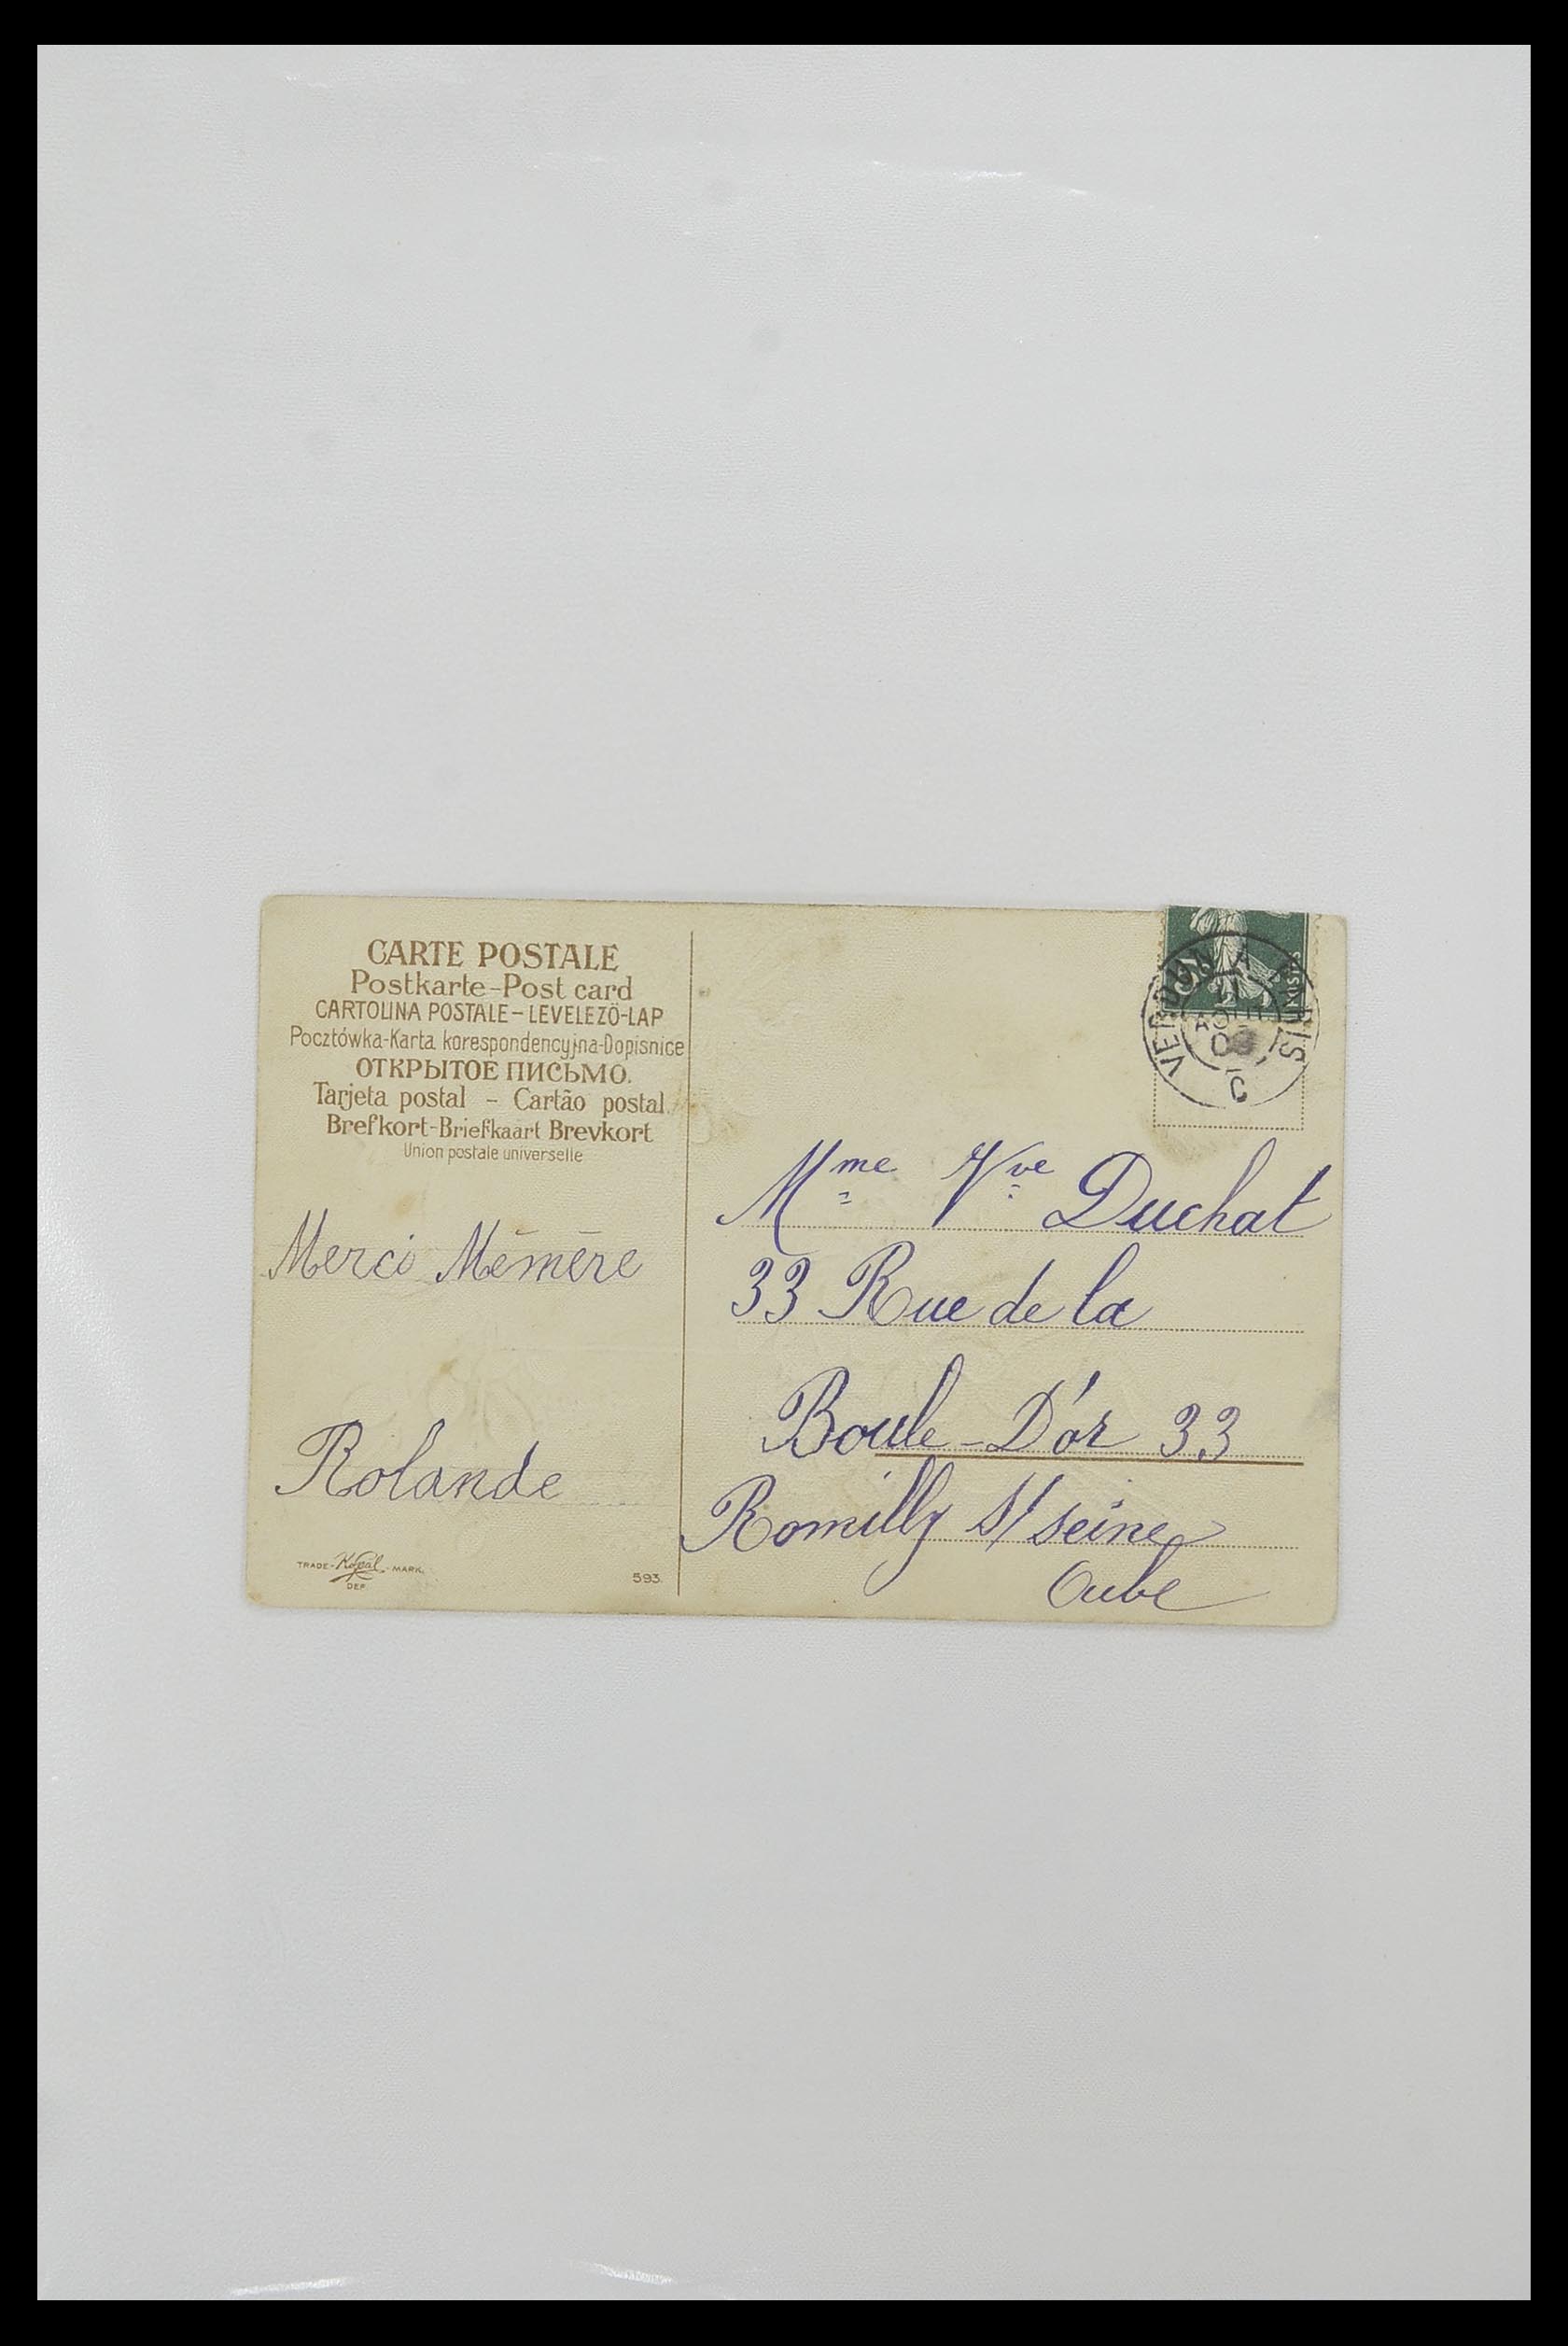 CARTE POSTALE
Postkarte-Post card
CARTOLINA POSTALE-LEVELEZÖ-LAP
Pocztówka-Karta korespondencyjna-Dopisnice
ОТКРЫТОЕ ПИСЬМО.
Tarjeta postal - Cartão postal.
Brefkort-Briefkaart Brevkort
Union postale universelle
Merci Mémère
Rolande
TRADE-Kopal-MARK.
DEP
593.
VERDUN A
AOUT
09
C
Mme Vve Duchat
33 Rue de la
Boule-D'or 33
Romilly S/ seine
Aube